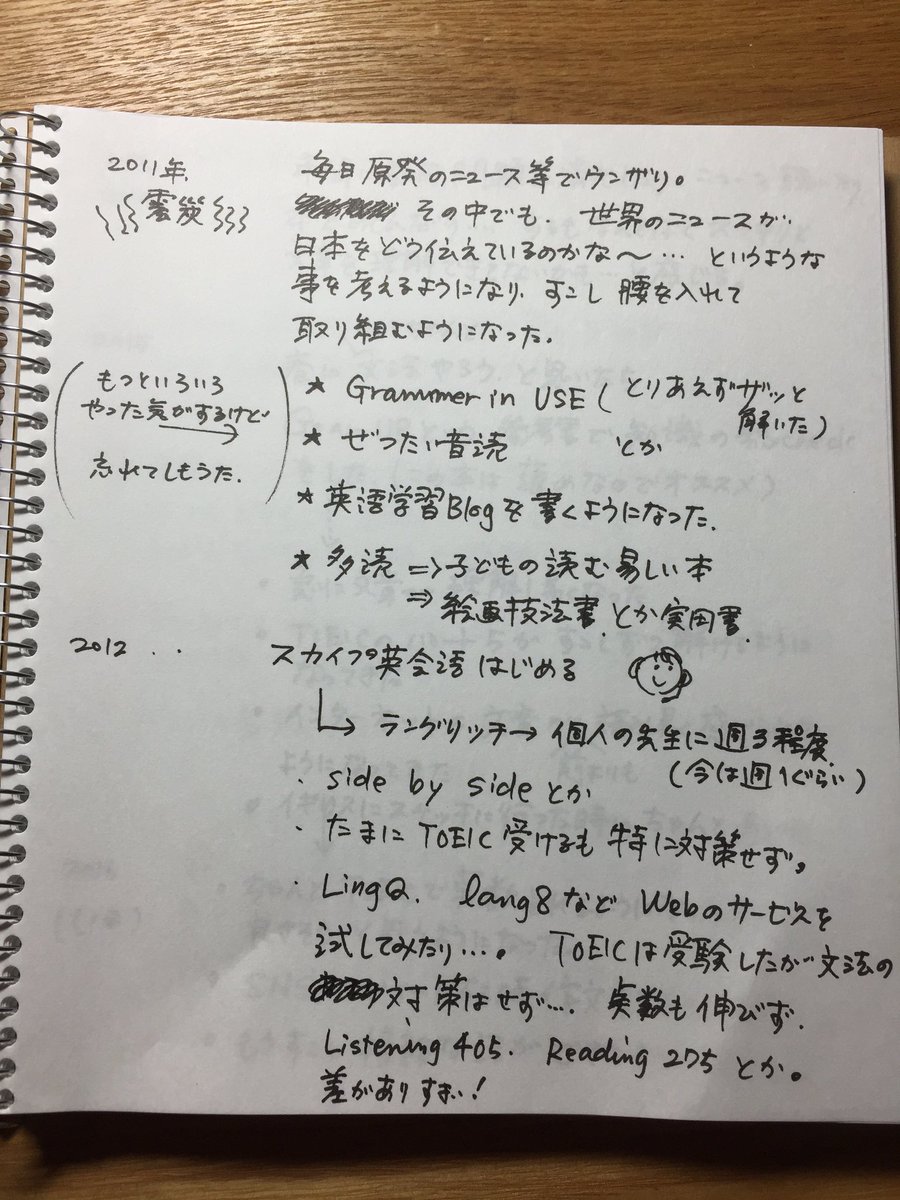 2011年、
震災
毎日原発のニュース等でウンザリ。
その中でも、世界のニュースが
日本をどう伝えているのかな〜… というような
事を考えるようになり、すこし腰を入れて
取り組むようになった。
(もっといろいろ
やった気がするけど
忘れてしもうた.)
★ Grammer in USE (とりあえずザッと
解いた)
★ ぜったい音読 とか
★ 英語学習Blogを書くようになった.
★ 多読 ⇒子どもの読む易しい本
⇒ 絵画技法書、とか実用書.
2012 ..
スカイプ英会話はじめる
↳ ラングリッチ→個人の先生に週3程度.
(今は週1ぐらい)
・side by side とか
・たまに TOEIC 受けるも特に対策せず。
・LingQ. lang8など Webのサービスを
試してみたり…。 TOEICは受験したが文法の
対策はせず…. 点数も伸びず.
Listening 405. Reading 275 とか。
差がありすぎ!